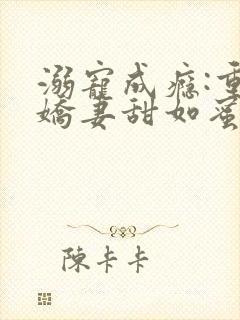 溺寵成癮:重
嬌妻甜如蜜
陳卡卡